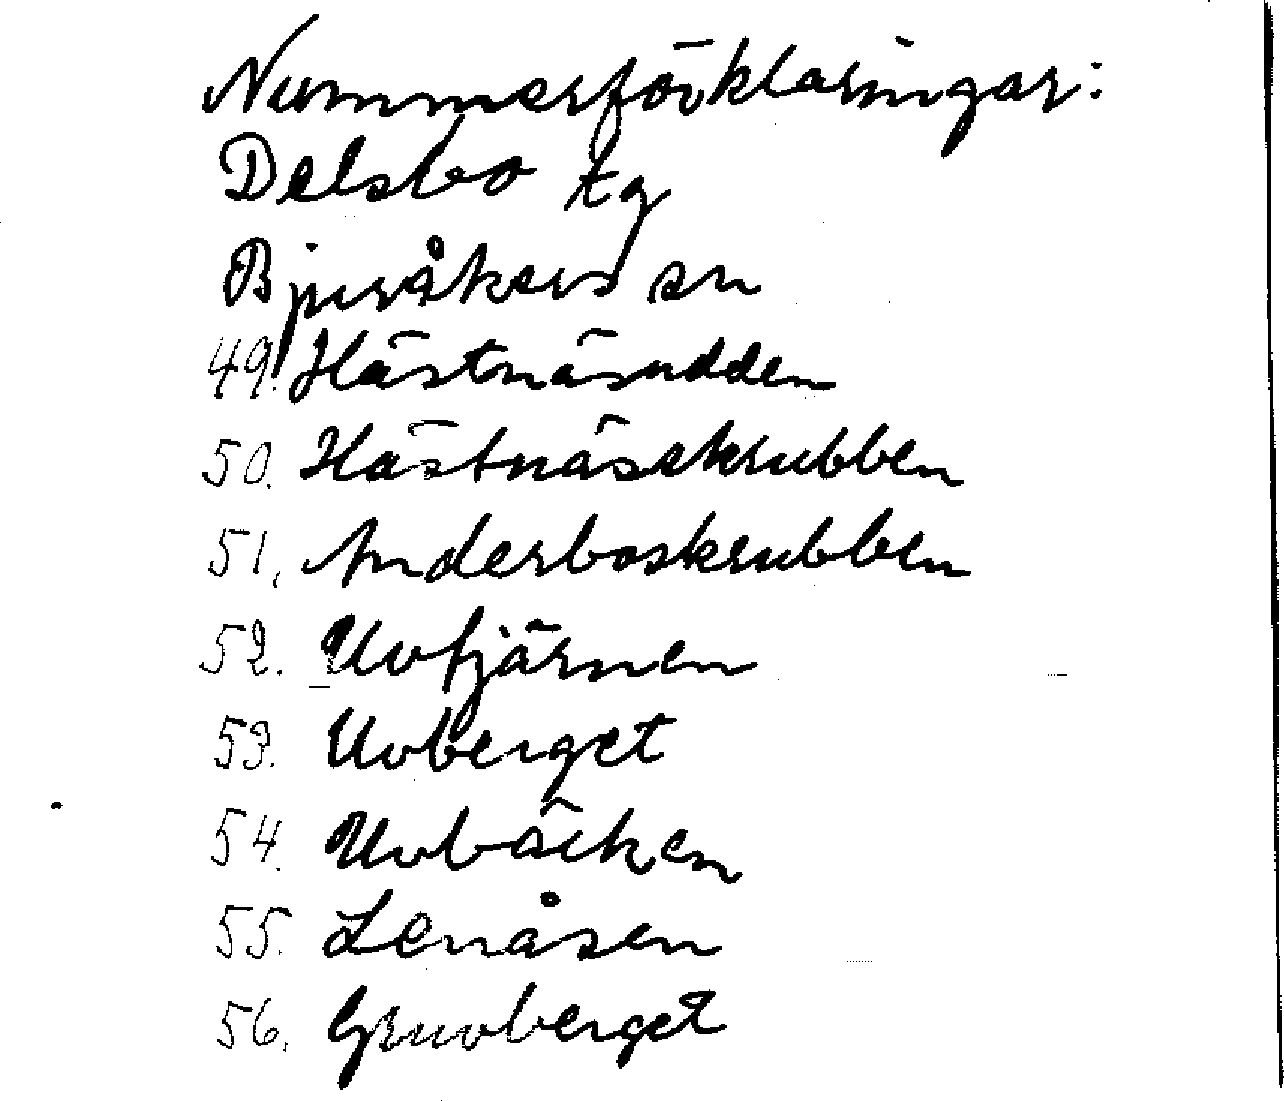 Nummerförklaringar:
Delsbo tg
Bjuråkers sn
49. Hästnäsudden
50. Hästnässkrubben
51. Anderboskrubben
52. Uvtjärnen
53. Uvberget
54. Uvbäcken
55. Lenåsen
56. Gruvberget